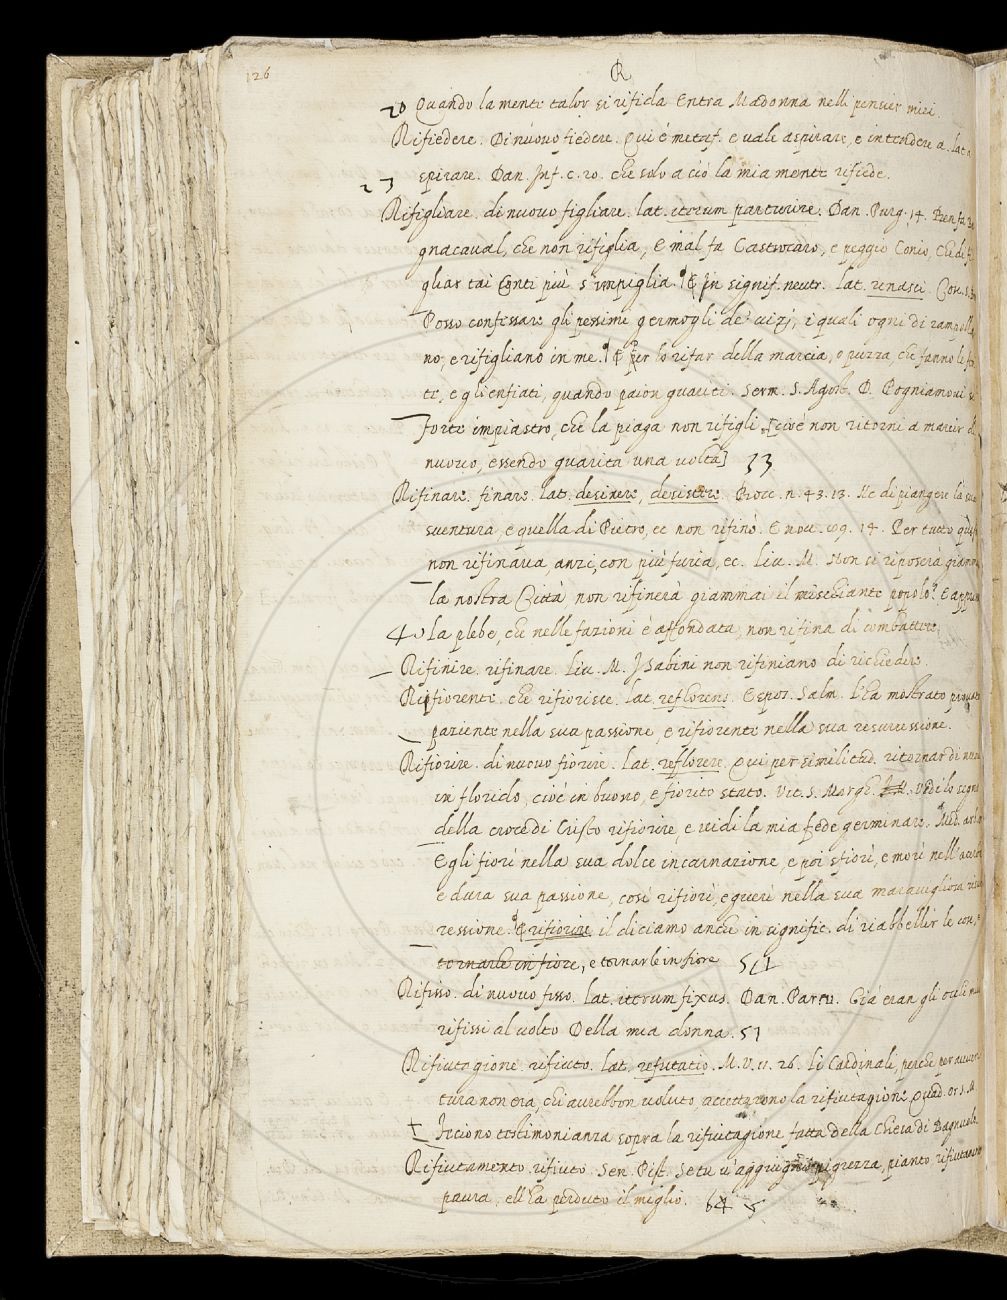 126
R
20 Quando la mente talor si rifida Entra Madonna nelli pensier miei.
Rifiedere. Di nuovo fiedere. Qui é metaf. e vale aspirare, e intendere a. lat. a
spirare. Dan. Inf. c. 20. che solo a ció la mia mente rifiede.
23
Rifigliare. di nuovo figliare. lat. iterum parturire. Dan. Purg. 14. Ben fa Ba
gnacaval, che non rifiglia, E mal fa Castrocaro, e peggio Conio, Che di fi
gliar tai Conti più s'impiglia. ¶ E In signif. neutr. lat. renasci.
Posso confessare gli pessimi germogli de' vizj, i quali ogni dì rampolla
no, e rifigliano in me. ¶ E per lo rifar della marcia, o puzza, che fanno le fi
te, e gli enfiati, quando paion guariti. Serm. S. Agost. D. Pogniamovi sì
forte impiastro, che la piaga non rifigli [cioé non ritorni a marcir di
nuovo, essendo guarita una volta] 33
Rifinare. finare. lat. desinere, desistere. Bocc. n. 43. 13. Ne di piangere la sua
sventura, e quella di Pietro, ec non rifinò. E nov. 99. 14. Per tutto questo
non rifinava, anzi, con più furia, ec. Liv. M. Non si riposerà giammai
la nostra Città, non rifinerà giammai il mischiante popolo? E appresso
40 la plebe, che nelle fazioni è affondata, non rifina di combattere.
Rifinire. rifinare. Liv. M. I Sabini non rifiniano di richiedere.
Rifiorente. che rifiorisce. lat. reflorens. Espos. Salm. L'ha mostrato
paziente nella sua passione, e rifiorente nella sua resurressione.
Rifiorire. di nuovo fiorire. lat. reflorere. Qui per similitud. ritornar di nuovo
in florido, cioé in buono, e fiorito stato. Vit. S. Margh. Vidi lo segno
della croce di Cristo rifiorire, e vidi la mia fede germinare. Med. arb.
Egli fiorì nella sua dolce incarnazione, e poi sfiorì, e morì nell'acerba
e dura sua passione, così rifiorì, e guerì nella sua maravigliosa risu
ressione. ¶ E rifiorire il diciamo anche in signific. di riabbellir le cose, e
tornarle in fiore, e tornarle in fiore 51
Rifisso. di nuovo fisso. lat. iterum fixus. Dan. Par. Già eran gli occhi miei
rifissi al volto Della mia donna. 51
Rifiutagione. rifiuto. lat. refutatio. M. V. 11. 26. li Cardinali, perchè per avven
tura non era, chi avrebbon voluto, accettarono la rifiutagione. Quad. or s. M.
+ Feciono testimonianza sopra la rifiutagione fatta della Chiesa di Bagnuolo.
Rifiutamento. rifiuto. Sen. Pist. Se tu v'aggiugni pigrezza, pianto rifiutamento
paura, ell'ha perduto il meglio. 64 5